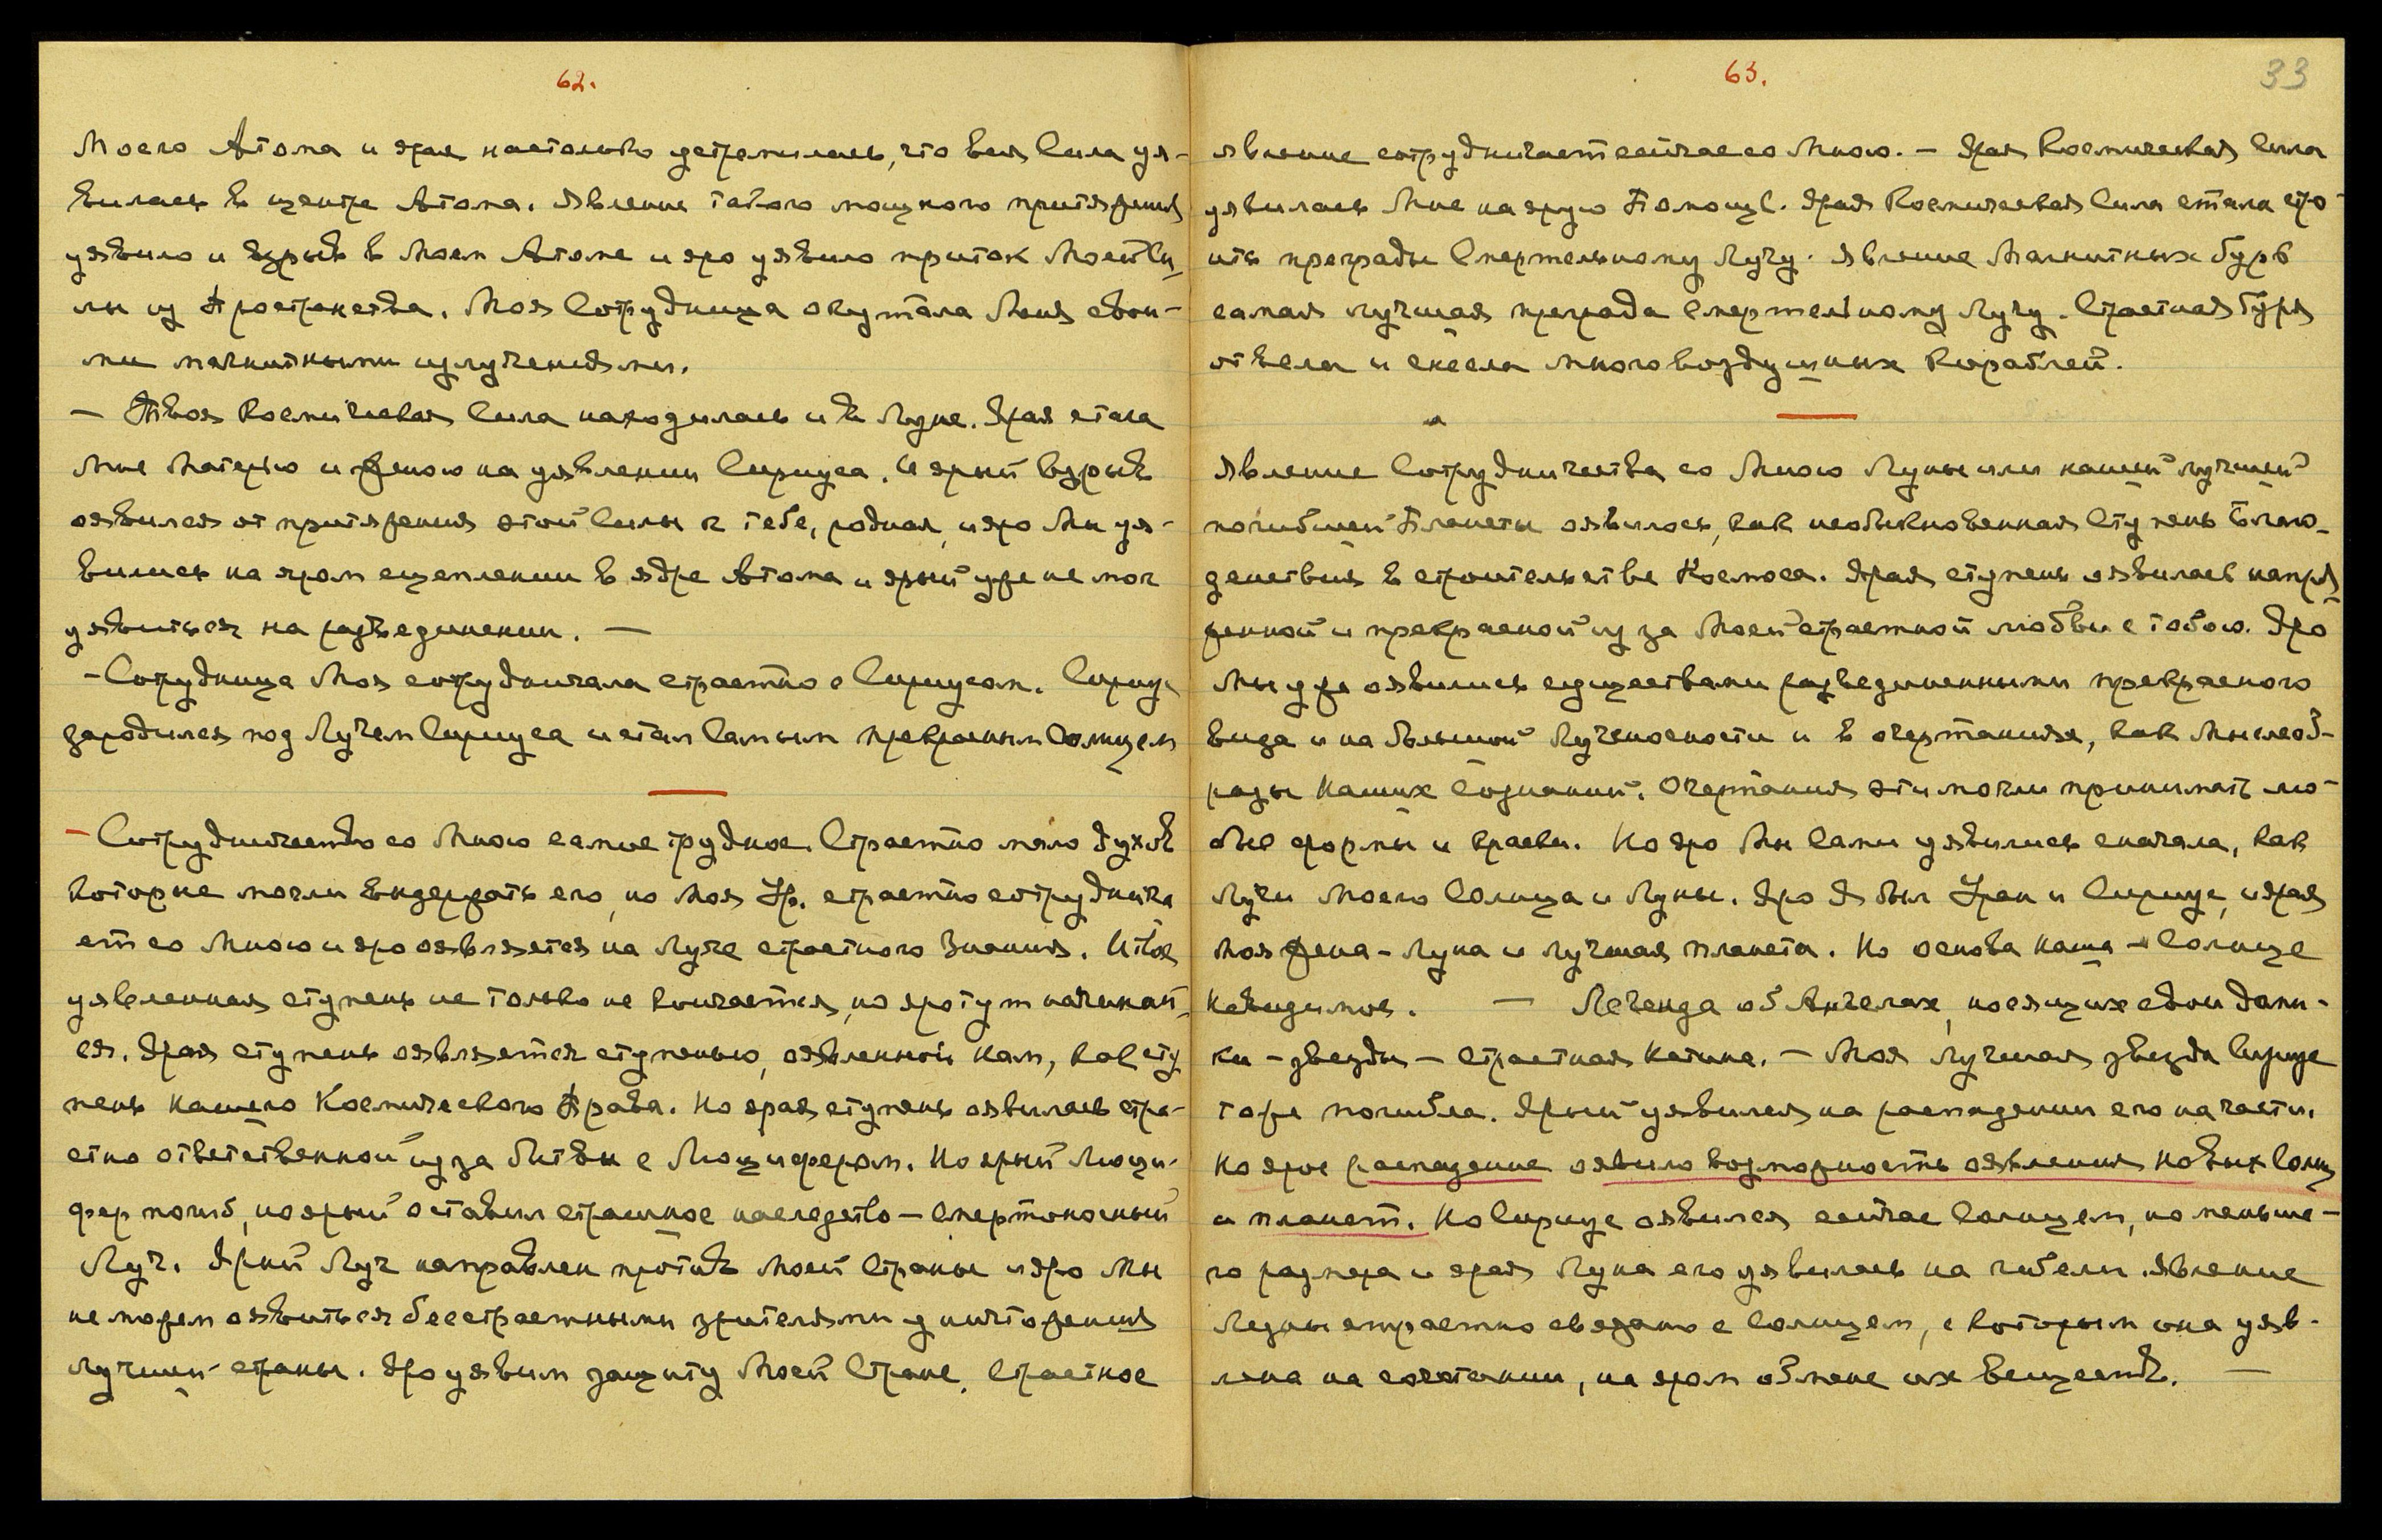 62.
Моего Атома и ярая настолько устремилась, что вся Сила уя-
вилась в центре Атома. Явление такого мощного притяжения
уявило и взрыв в Моем Атоме и яро уявило приток Моей Си-
лы из Пространства. Моя Сотрудница окутала Меня свои-
ми магнитными излучениями.
— Твоя Космическая Сила находилась и в Луне. Ярая стала
Мне Матерью и Женою на уявлении Сириуса. И ярый взрыв
оявился от притяжения этой Силы к тебе, родная, и яро Мы уя-
вились на яром сцеплении в ядре Атома и ярый уже не мог
уявиться на разъединении. —
- Сотрудница Моя сотрудничала страстно с Сириусом. Сириус
зародился под Лучем Сириуса и стал Самым прекрасным Солнцем
- Сотрудничество со Мною самое трудное. Страстно мало духов
которые могли выдержать его, но Моя Ур. страстно сотрудничa
ет со Мною и яро оявляется на Луче страстного Знания. И твоя
уявленная ступень не только не кончается, но яро тут начинает-
ся. Ярая ступень оявляется ступенью, оявленной нам, как сту
пень нашего Космического Права. Но ярая ступень оявилась стра-
стно ответственной из за битвы с Люцифером. Но ярый Люци-
фер погиб, но ярый оставил страшное наследство — Смертоносный
Луч. Ярый Луч направлен против Моей Страны и яро Мы
не можем оявиться бесстрастными зрителями уничтожения
лучшей страны. Яро уявим защиту Моей Стране, Страстное
63.
33
явление сотрудничает сейчас со Мною. — Ярая Космическая Сила
уявилась Мне на ярую Помощь. Ярая Космическая Сила стала стро-
ить преграды Смертельному Лучу. Явление Магнитных бурь
самая лучшая преграда Смертельному Лучу. Страстная буря
отвела и снесла много воздушных Кораблей.
Явление Сотрудничества со Мною Луны или нашей лучшей
погибшей Планеты оявилось, как необыкновенная Ступень Благо-
денствия в строительстве Космоса. Ярая ступень оявилась напря-
женной и прекрасной из за Моей страстной любви с тобою. Яро
Мы уже оявились существами разъединенными прекрасного
вида и на большой Лученосности и в очертаниях, как Мыслеоб-
разы Наших Сознаний. Очертания эти могли принимать лю-
бые формы и краски. Но яро Мы Сами уявились сначала, как
Лучи Моего Солнца и Луны. Яро Я был Уран и Сириус, и ярая
Моя Жена - Луна и лучшая планета. Но основа наша - Солнце
Невидимое. — Легенда об Ангелах, носящих свои дани-
ки - звезды — страстная Истина. — Моя лучшая звезда Сириус
тоже погибла. Ярый уявился на распадении его на части.
Но ярое распадение оявило возможность оявления новых Солнц
и планет. Но Сириус оявился сейчас Солнцем, но меньше-
го размера и ярая Луна его уявилась на гибели. Явление
Луны страстно связано с Солнцем, с которым она уяв-
лена на сочетании, на яром обмене их веществ. —